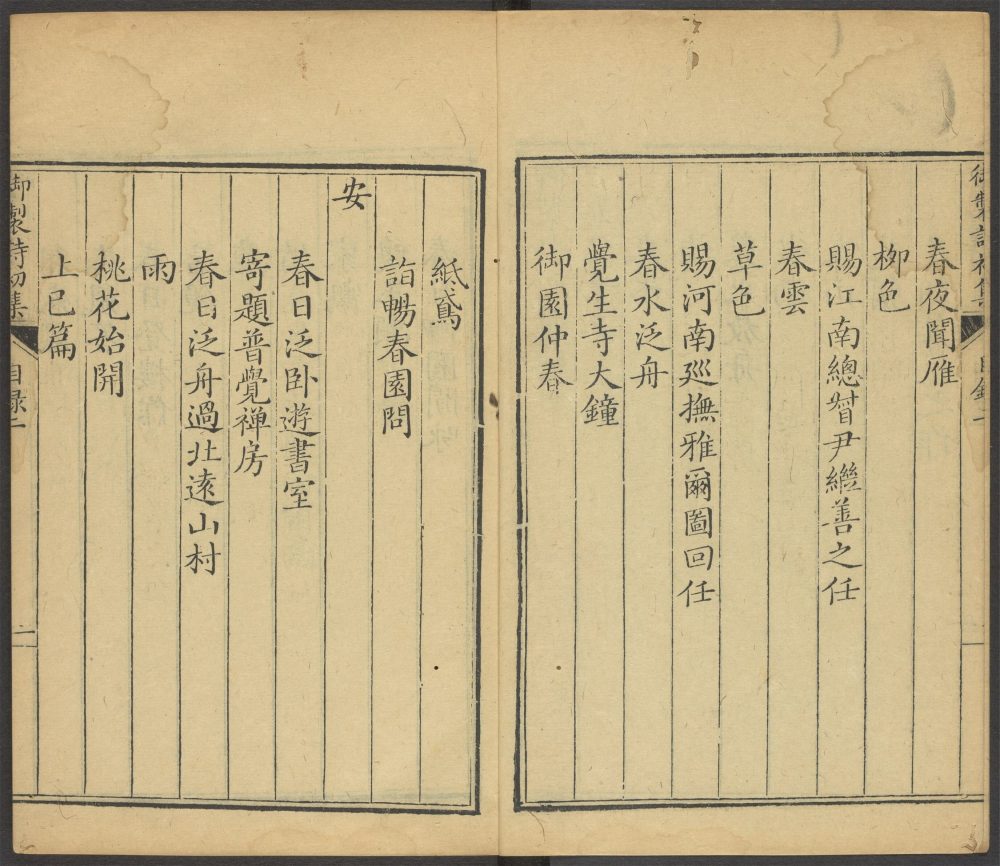 御製詩初集 目錄二
春夜聞雁
柳色
賜江南總督尹繼善之任
春雲
草色
賜河南廵撫雅爾圖回任
春水泛舟
覺生寺大鐘
御園仲春
紙鳶
詣暢春園問
安
春日泛卧遊書室
寄題普覺禅房
春日泛舟過北遠山村
雨
桃花始開
上巳篇
御製詩初集 目錄二